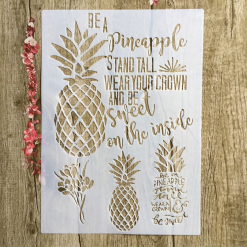 BE A
Pineapple
STAND TALL
WEAR YOUR CROWN
AND BE
Sweet
on the inside
BE A
PINEAPPLE
WEAR A
CROWN &
be sweet